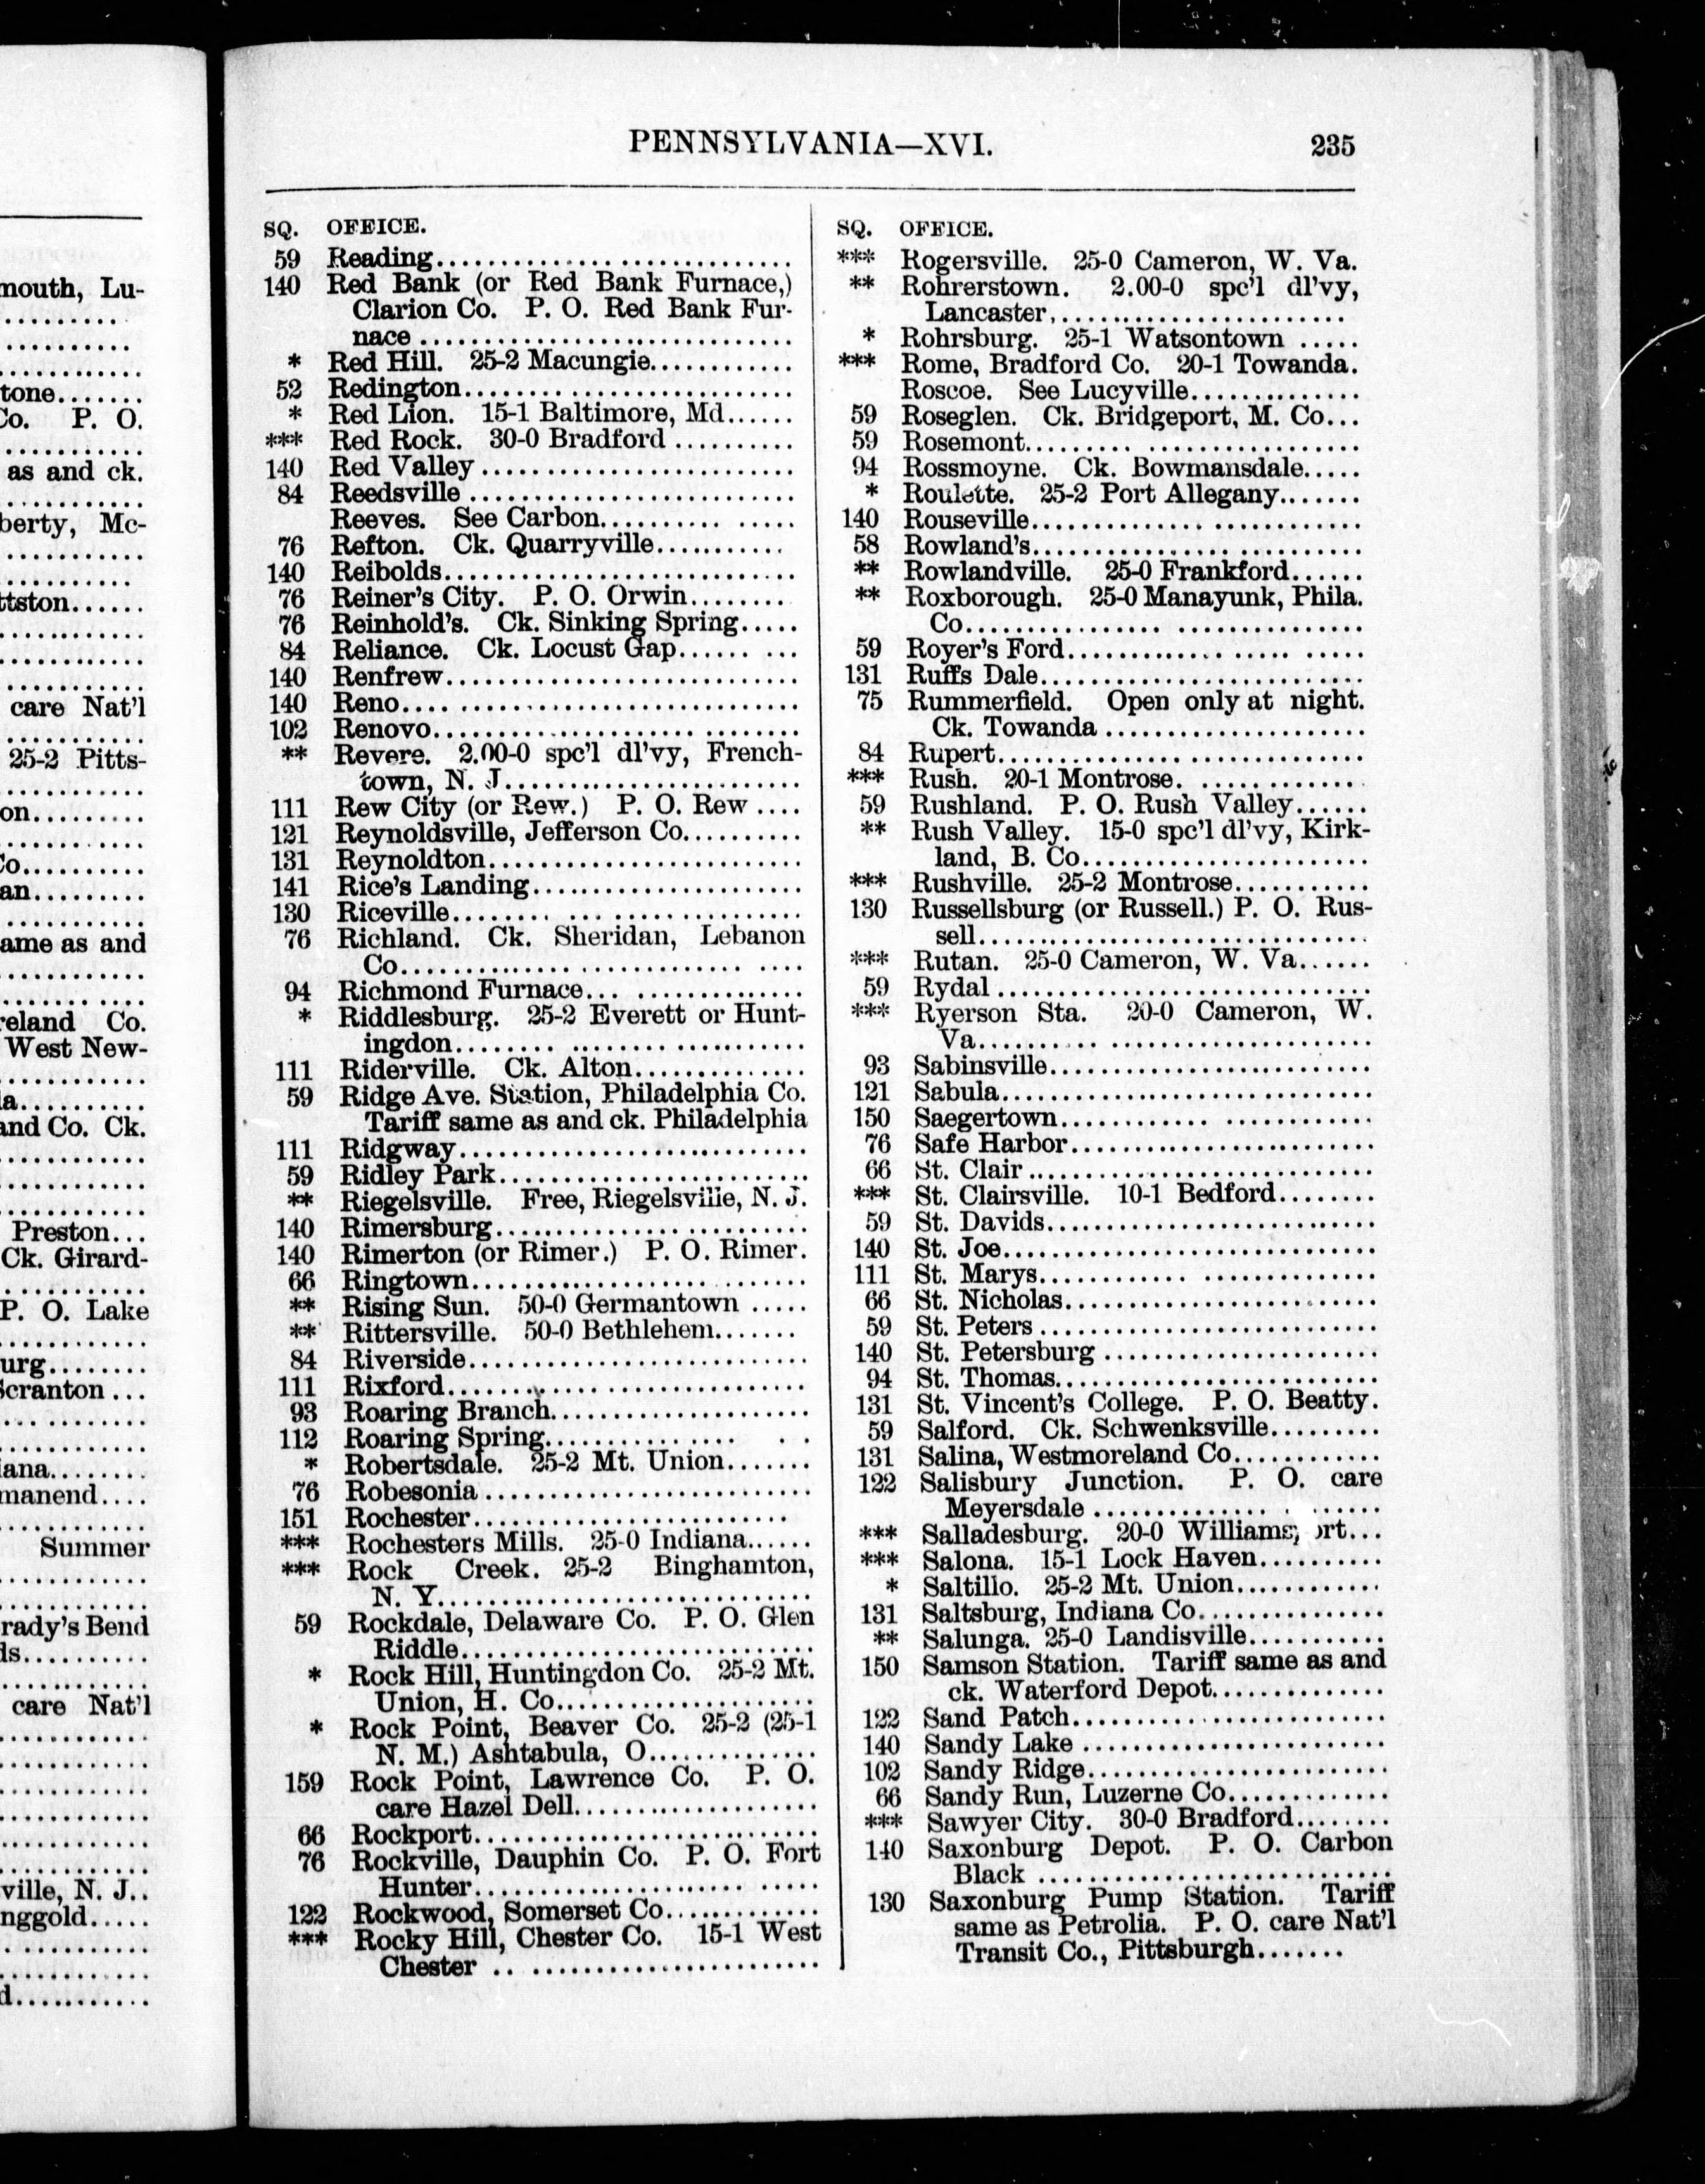 mouth, Lu-
tone.......
Co. P. O.
as and ck.
berty, Mc-
ttston......
care Nat'l
25-2 Pitts-
on.........
Co..........
an.........
ame as and
reland Co.
West New-
la..........
and Co. Ck.
Preston...
Ck. Girard-
P. O. Lake
urg........
Scranton...
iana........
manend....
Summer
rady's Bend
ds..........
care Nat'l
ville, N. J..
nggold.....
d...........
PENNSYLVANIA—XVI. 235
SQ. OFFICE.
59 Reading............................
140 Red Bank (or Red Bank Furnace,)
Clarion Co. P. O. Red Bank Fur-
nace ............................
* Red Hill. 25-2 Macungie............
52 Redington..........................
* Red Lion. 15-1 Baltimore, Md......
*** Red Rock. 30-0 Bradford ..........
140 Red Valley ........................
84 Reedsville .........................
Reeves. See Carbon................
76 Refton. Ck. Quarryville............
140 Reibolds...........................
76 Reiner's City. P. O. Orwin.........
76 Reinhold's. Ck. Sinking Spring.....
84 Reliance. Ck. Locust Gap...... ...
140 Renfrew...........................
140 Reno..............................
102 Renovo............................
** Revere. 2.00-0 spc'l dl'vy, French-
town, N. J.......................
111 Rew City (or Rew.) P. O. Rew ....
121 Reynoldsville, Jefferson Co..........
131 Reynoldton........................
141 Rice's Landing.....................
130 Riceville...........................
76 Richland. Ck. Sheridan, Lebanon
Co...............................
94 Richmond Furnace... .............
* Riddlesburg. 25-2 Everett or Hunt-
ingdon...........................
111 Riderville. Ck. Alton..............
59 Ridge Ave. Station, Philadelphia Co.
Tariff same as and ck. Philadelphia
111 Ridgway...........................
59 Ridley Park........................
** Riegelsville. Free, Riegelsville, N. J.
140 Rimersburg........................
140 Rimerton (or Rimer.) P. O. Rimer.
66 Ringtown..........................
** Rising Sun. 50-0 Germantown .....
** Rittersville. 50-0 Bethlehem.......
84 Riverside..........................
111 Rixford............................
93 Roaring Branch....................
112 Roaring Spring............... . .
* Robertsdale. 25-2 Mt. Union.......
76 Robesonia .........................
151 Rochester........................
*** Rochesters Mills. 25-0 Indiana......
*** Rock Creek. 25-2 Binghamton,
N. Y.............................
59 Rockdale, Delaware Co. P. O. Glen
Riddle...........................
* Rock Hill, Huntingdon Co. 25-2 Mt.
Union, H. Co.....................
* Rock Point, Beaver Co. 25-2 (25-1
N. M.) Ashtabula, O..............
159 Rock Point, Lawrence Co. P. O.
care Hazel Dell...................
66 Rockport..........................
76 Rockville, Dauphin Co. P. O. Fort
Hunter..........................
122 Rockwood, Somerset Co.............
*** Rocky Hill, Chester Co. 15-1 West
Chester .. ......................
SQ. OFFICE.
*** Rogersville. 25-0 Cameron, W. Va.
** Rohrerstown. 2.00-0 spc'l dl'vy,
Lancaster,......................
* Rohrsburg. 25-1 Watsontown .....
*** Rome, Bradford Co. 20-1 Towanda.
Roscoe. See Lucyville..............
59 Roseglen. Ck. Bridgeport, M. Co...
59 Rosemont..........................
94 Rossmoyne. Ck. Bowmansdale.....
* Roulette. 25-2 Port Allegany.......
140 Rouseville............. ............
58 Rowland's..........................
** Rowlandville. 25-0 Frankford......
** Roxborough. 25-0 Manayunk, Phila.
Co...............................
59 Royer's Ford.......................
131 Ruffs Dale.........................
75 Rummerfield. Open only at night.
Ck. Towanda ....................
84 Rupert............................
*** Rush. 20-1 Montrose. .............
59 Rushland. P. O. Rush Valley......
** Rush Valley. 15-0 spc'l dl'vy, Kirk-
land, B. Co......................
*** Rushville. 25-2 Montrose...........
130 Russellsburg (or Russell.) P. O. Rus-
sell..............................
*** Rutan. 25-0 Cameron, W. Va......
59 Rydal .............................
*** Ryerson Sta. 20-0 Cameron, W.
Va..............................
93 Sabinsville.........................
121 Sabula.............................
150 Saegertown........... ............
76 Safe Harbor........................
66 St. Clair...........................
*** St. Clairsville. 10-1 Bedford........
59 St. Davids..........................
140 St. Joe.............................
111 St. Marys..........................
66 St. Nicholas........................
59 St. Peters ..........................
140 St. Petersburg .....................
94 St. Thomas.........................
131 St. Vincent's College. P. O. Beatty.
59 Salford. Ck. Schwenksville.........
131 Salina, Westmoreland Co............
122 Salisbury Junction. P. O. care
Meyersdale ......................
*** Salladesburg. 20-0 Williamsport...
*** Salona. 15-1 Lock Haven..........
* Saltillo. 25-2 Mt. Union............
131 Saltsburg, Indiana Co...............
** Salunga. 25-0 Landisville...........
150 Samson Station. Tariff same as and
ck. Waterford Depot..............
122 Sand Patch.........................
140 Sandy Lake .......................
102 Sandy Ridge.......................
66 Sandy Run, Luzerne Co.............
*** Sawyer City. 30-0 Bradford........
140 Saxonburg Depot. P. O. Carbon
Black ...........................
130 Saxonburg Pump Station. Tariff
same as Petrolia. P. O. care Nat'l
Transit Co., Pittsburgh.......